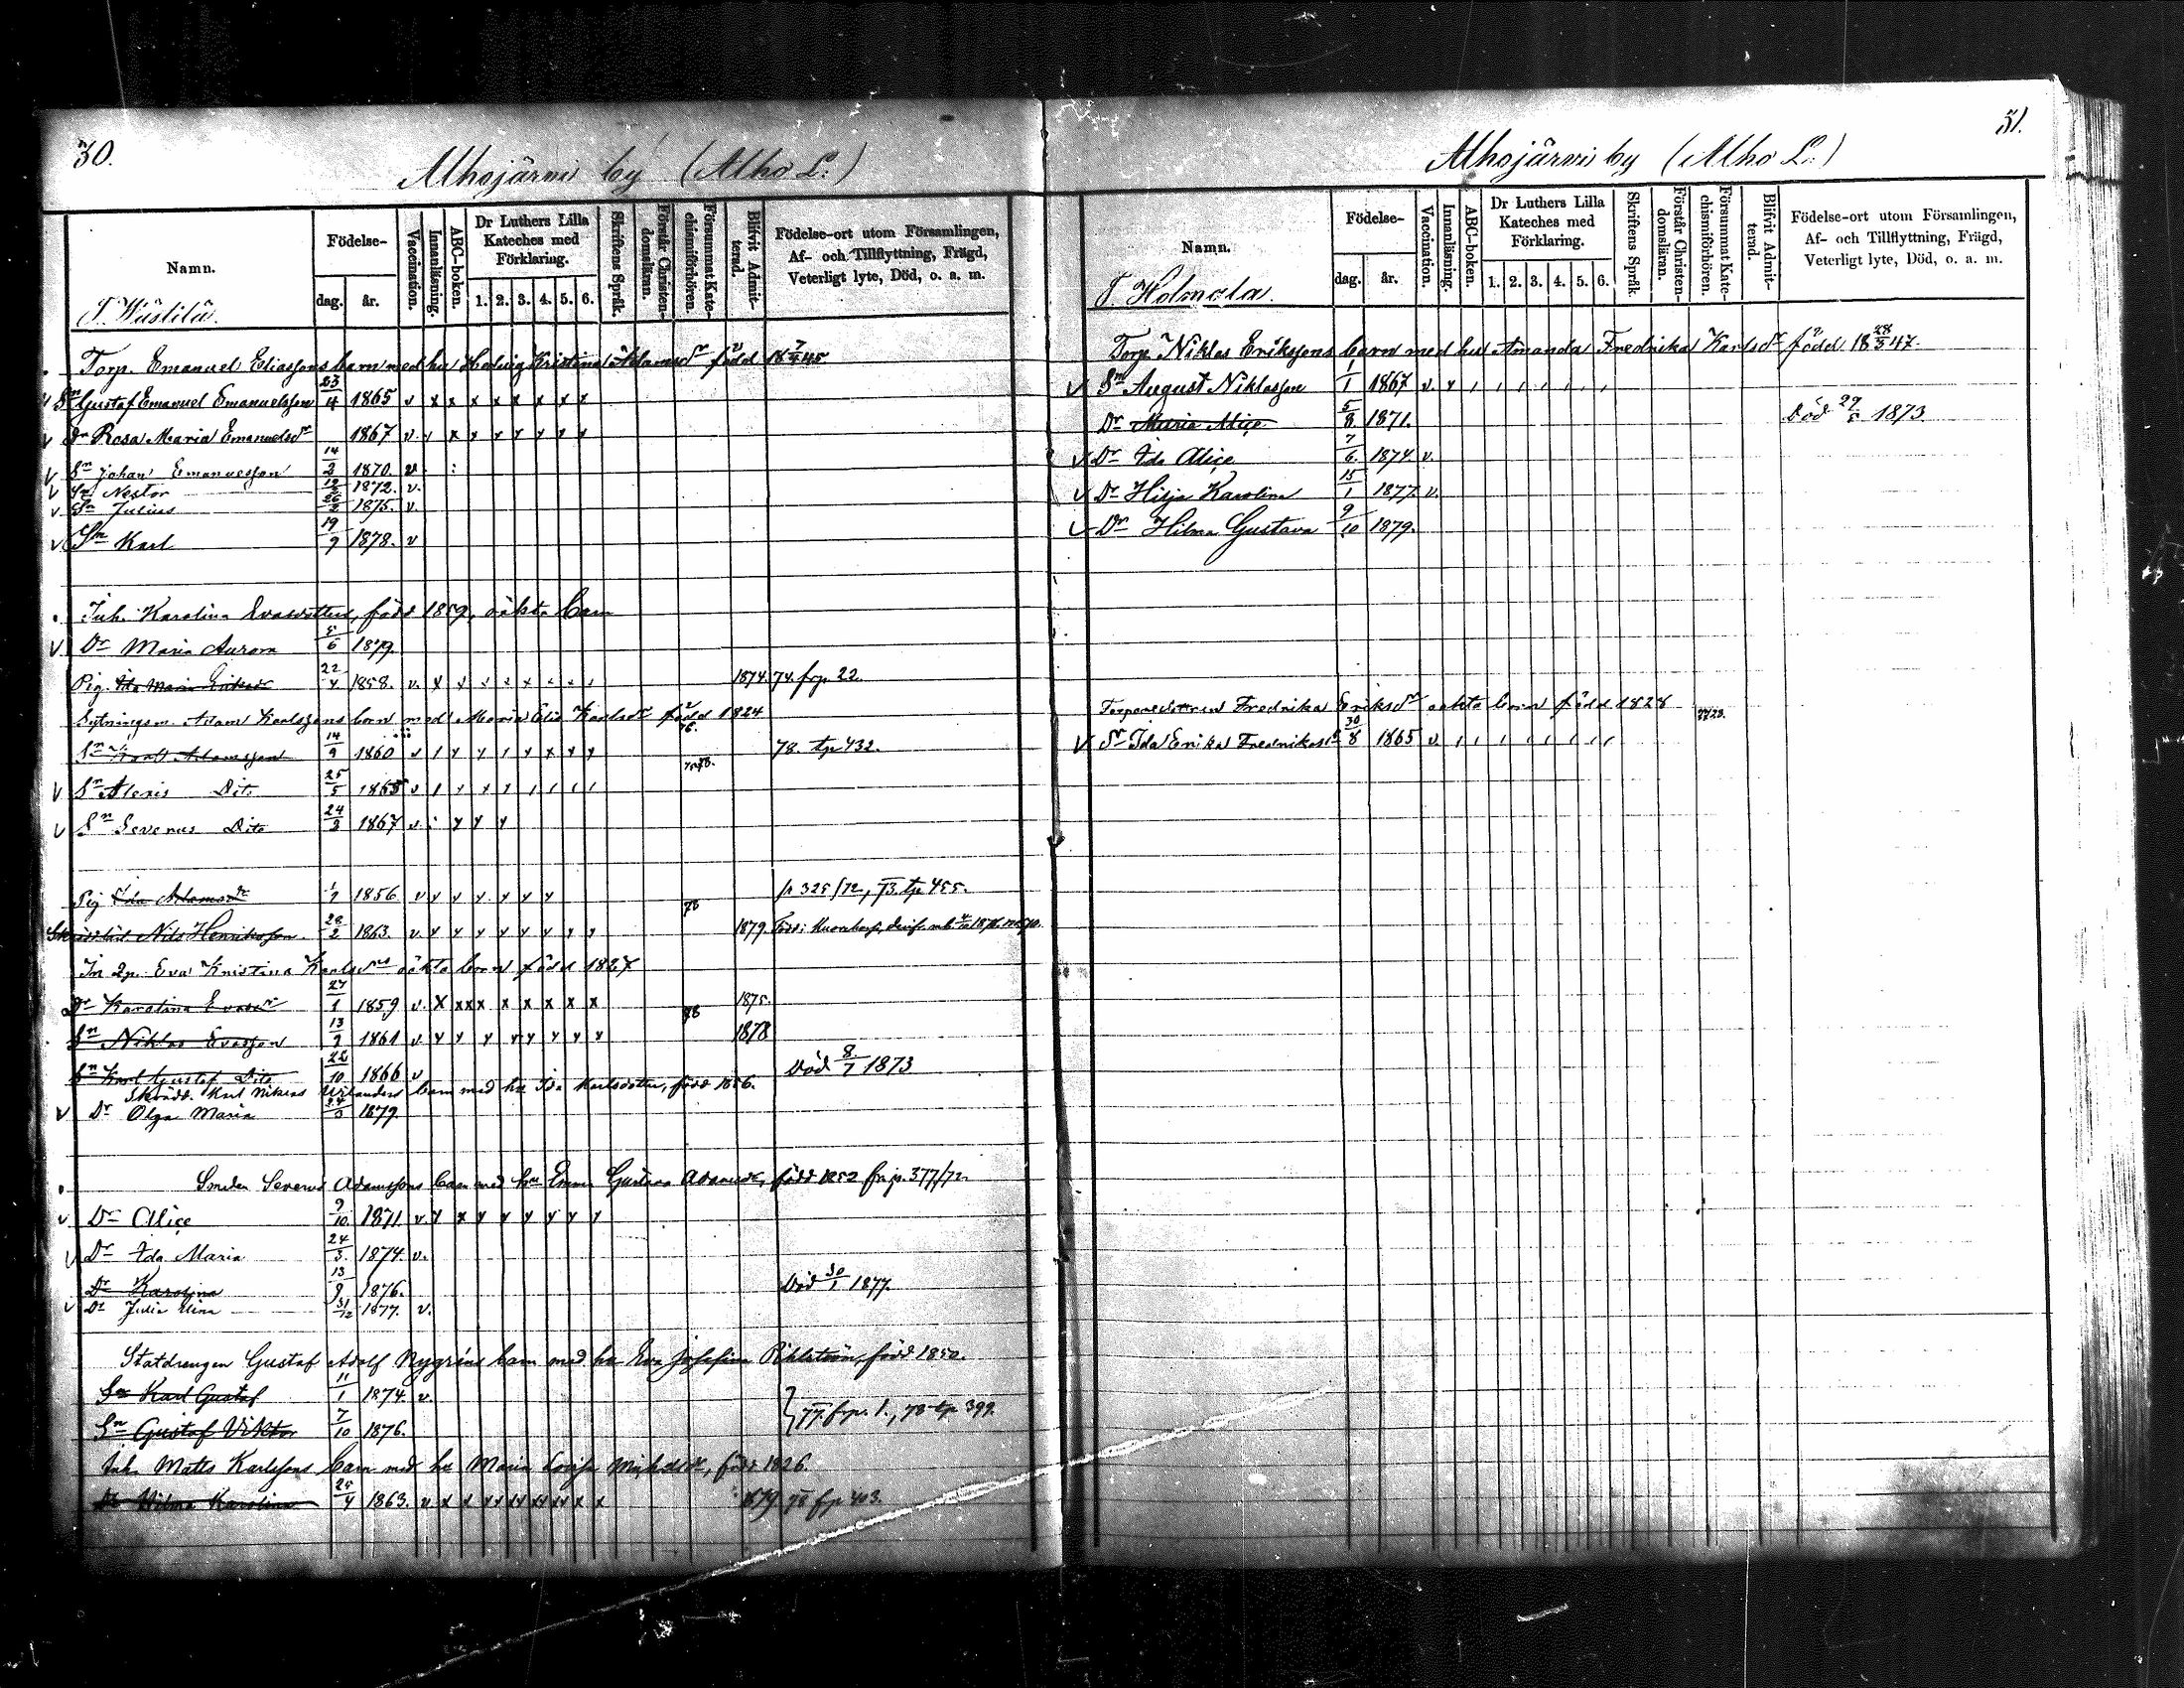 30.
Alhojärvi by (Alho L:)
Namn.
Födelse-
dag.
år.
Vaccination.
Innanläsning.
ABC-boken.
Dr Luthers Lilla Kateches med Förklaring.
1. 2. 3. 4. 5. 6.
Skriftens Språk.
Förstår Christendomsläran.
Försummat Katechismiförhören.
Blifvit Admitterad.
Födelse-ort utom Församlingen, Af- och Tillflyttning, Frägd, Veterligt lyte, Död, o. a. m.
T. Wästilä.
Torp. Emanuel Eliassons barn med hu Hedvig Kristina Adamsdr född 18 7/4 45
Sn Gustaf Emanuel Emanuelsson 23/4 1865 v x x x x x x x x
Dr Rosa Maria Emanuelsdr 1867 v.
Sn Johan Emanuelsson 14/2 1870. v
Sn Nestor 1872. v.
Sn Julius 1875. v
Sn Karl 19/9 1878. v
Inh. Karolina Evasdotter, född 1859, oäkta barn
Dr Maria Aurora 5/6 1879
Pig. Ida Maria 22/4 1858. v. 1874. 74. frp. 22.
Sytningsm. Adam Karlssons barn med Maria Karlsdr född 1824
Sn Karl Adamsson 14/9 1860 v 78. tp 432.
Sn Alexis Dito 25/5 1865 v
Sn Severus Dito 24/2 1867 v.
Pig Ida Adamsdr 1856 v p 325/72, 73. tp 455.
Nils Henriksson. 28/2 1863. v. 78 1879.
Eva Kristina Karlsdrs oäkta barn född 1827
Dr Karolina Evasdr 27/1 1859 v. x x x x x x x x x 1875.
Sn Niklas Evasson 13/2 1861 v 78 1878
Sn Karl Gustaf Dito 22/10 1866 v Död 8/7 1873
Karl barn med hu Ida Karlsdotter, född 1856.
Dr Olga Maria 24/3 1879
Smeden Severus Adamssons barn med hu Emma Gustava Adamsdr, född 1852 fr. p. 377/72.
Dr Alice 9/10 1871 v
Dr Ida Maria 24/3 1874. v.
Dr Karolina 13/9 1876. Död 30/1 1877.
Dr Julia Elina 31/12 1877. v.
Statdrengen Gustaf Adolf Nygréns barn med hu Eva Josefina född 1850.
Sn Karl Gustaf 11/1 1874. v.
Sn Gustaf Viktor 7/10 1876. } 77. frp. 1., 78 tp 399.
Inh. Matts Karlssons barn med hu Maria Lovisa född 1826.
Dr Wilma Karolina 25/4 1863. v 1879. 78 frp 403.
31.
Alhojärvi by (Alho L.)
Namn.
Födelse-
dag.
år.
Vaccination.
Innanläsning.
ABC-boken.
Dr Luthers Lilla Kateches med Förklaring.
1. 2. 3. 4. 5. 6.
Skriftens Språk.
Förstår Christendomsläran.
Försummat Katechismiförhören.
Blifvit Admitterad.
Födelse-ort utom Församlingen, Af- och Tillflyttning, Frägd, Veterligt lyte, Död, o. a. m.
T. Holmola.
Torp Niklas Erikssons barn med hu Amanda Fredrika Karlsdr född 18 28/3 47.
Sn August Niklasson 1/1 1867 v.
Dr Maria Alice 5/8 1871. Död 29/5 1873
Dr Ida Alice 7/6 1874 v.
Dr Hilja Karolina 15/1 1877. v.
Dr Hilma Gustava 9/10 1879.
Fredrika Eriksdr oäkta barn född 1828
Dr Ida Erika Fredrikasdr 30/8 1865 v.